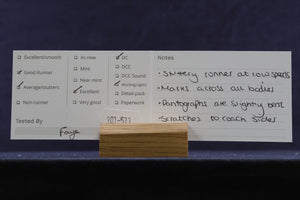 Excellent/smooth
Good Runner
Average/stutters
Non-runner
As new
Mint
Near mint
Excellent
Very good
DC
DCC
DCC Sound
Working Lights
Detail pack
Paperwork
Notes
• Jittery runner at low speeds
• Marks across all bodies
• Pantographs are slightly bent
Scratches to coach sides
Tested By
Faye
201-511